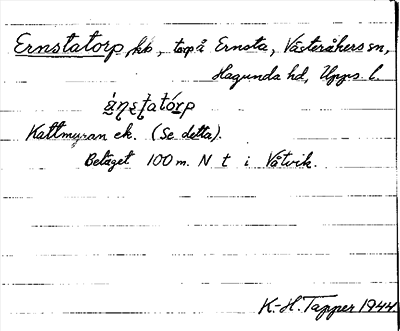 Ernstatorp, hb, torp å Ernsta, Västeråkers sn,
Hagunda hd, Upps. l.
Kattmyran ek. (Se detta).
Beläget 100 m. N t i Våtvik.
K.-H. Tapper 1944